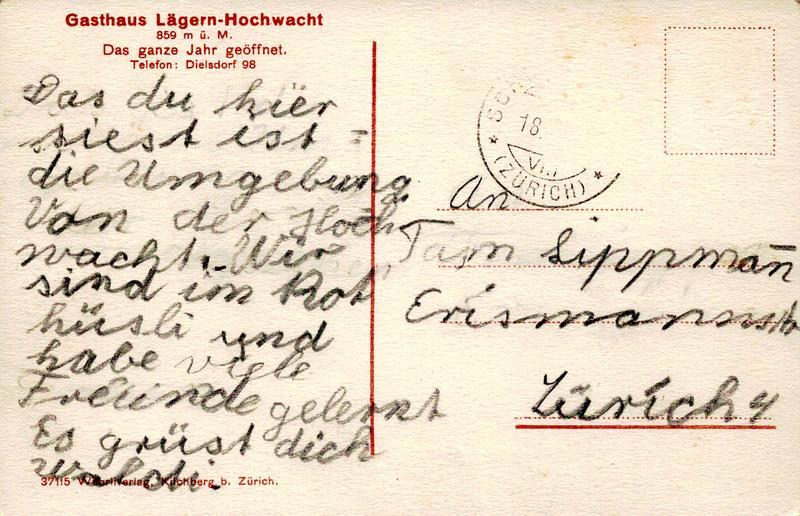 Gasthaus Lägern-Hochwacht
859 m ü. M.
Das ganze Jahr geöffnet.
Telefon: Dielsdorf 98
Das du hier
siest ist
die Umgebung
Von der Hoch
wacht. Wir
sind im Rot
hüsli und
habe viele
Freunde gelernt
Es grüst dich
Waldi.
37115 Wehrliverlag, Kilchberg b. Zürich.
18.
VII
(ZÜRICH)
An
Sippman̄
Erismannstr
Zürich 4